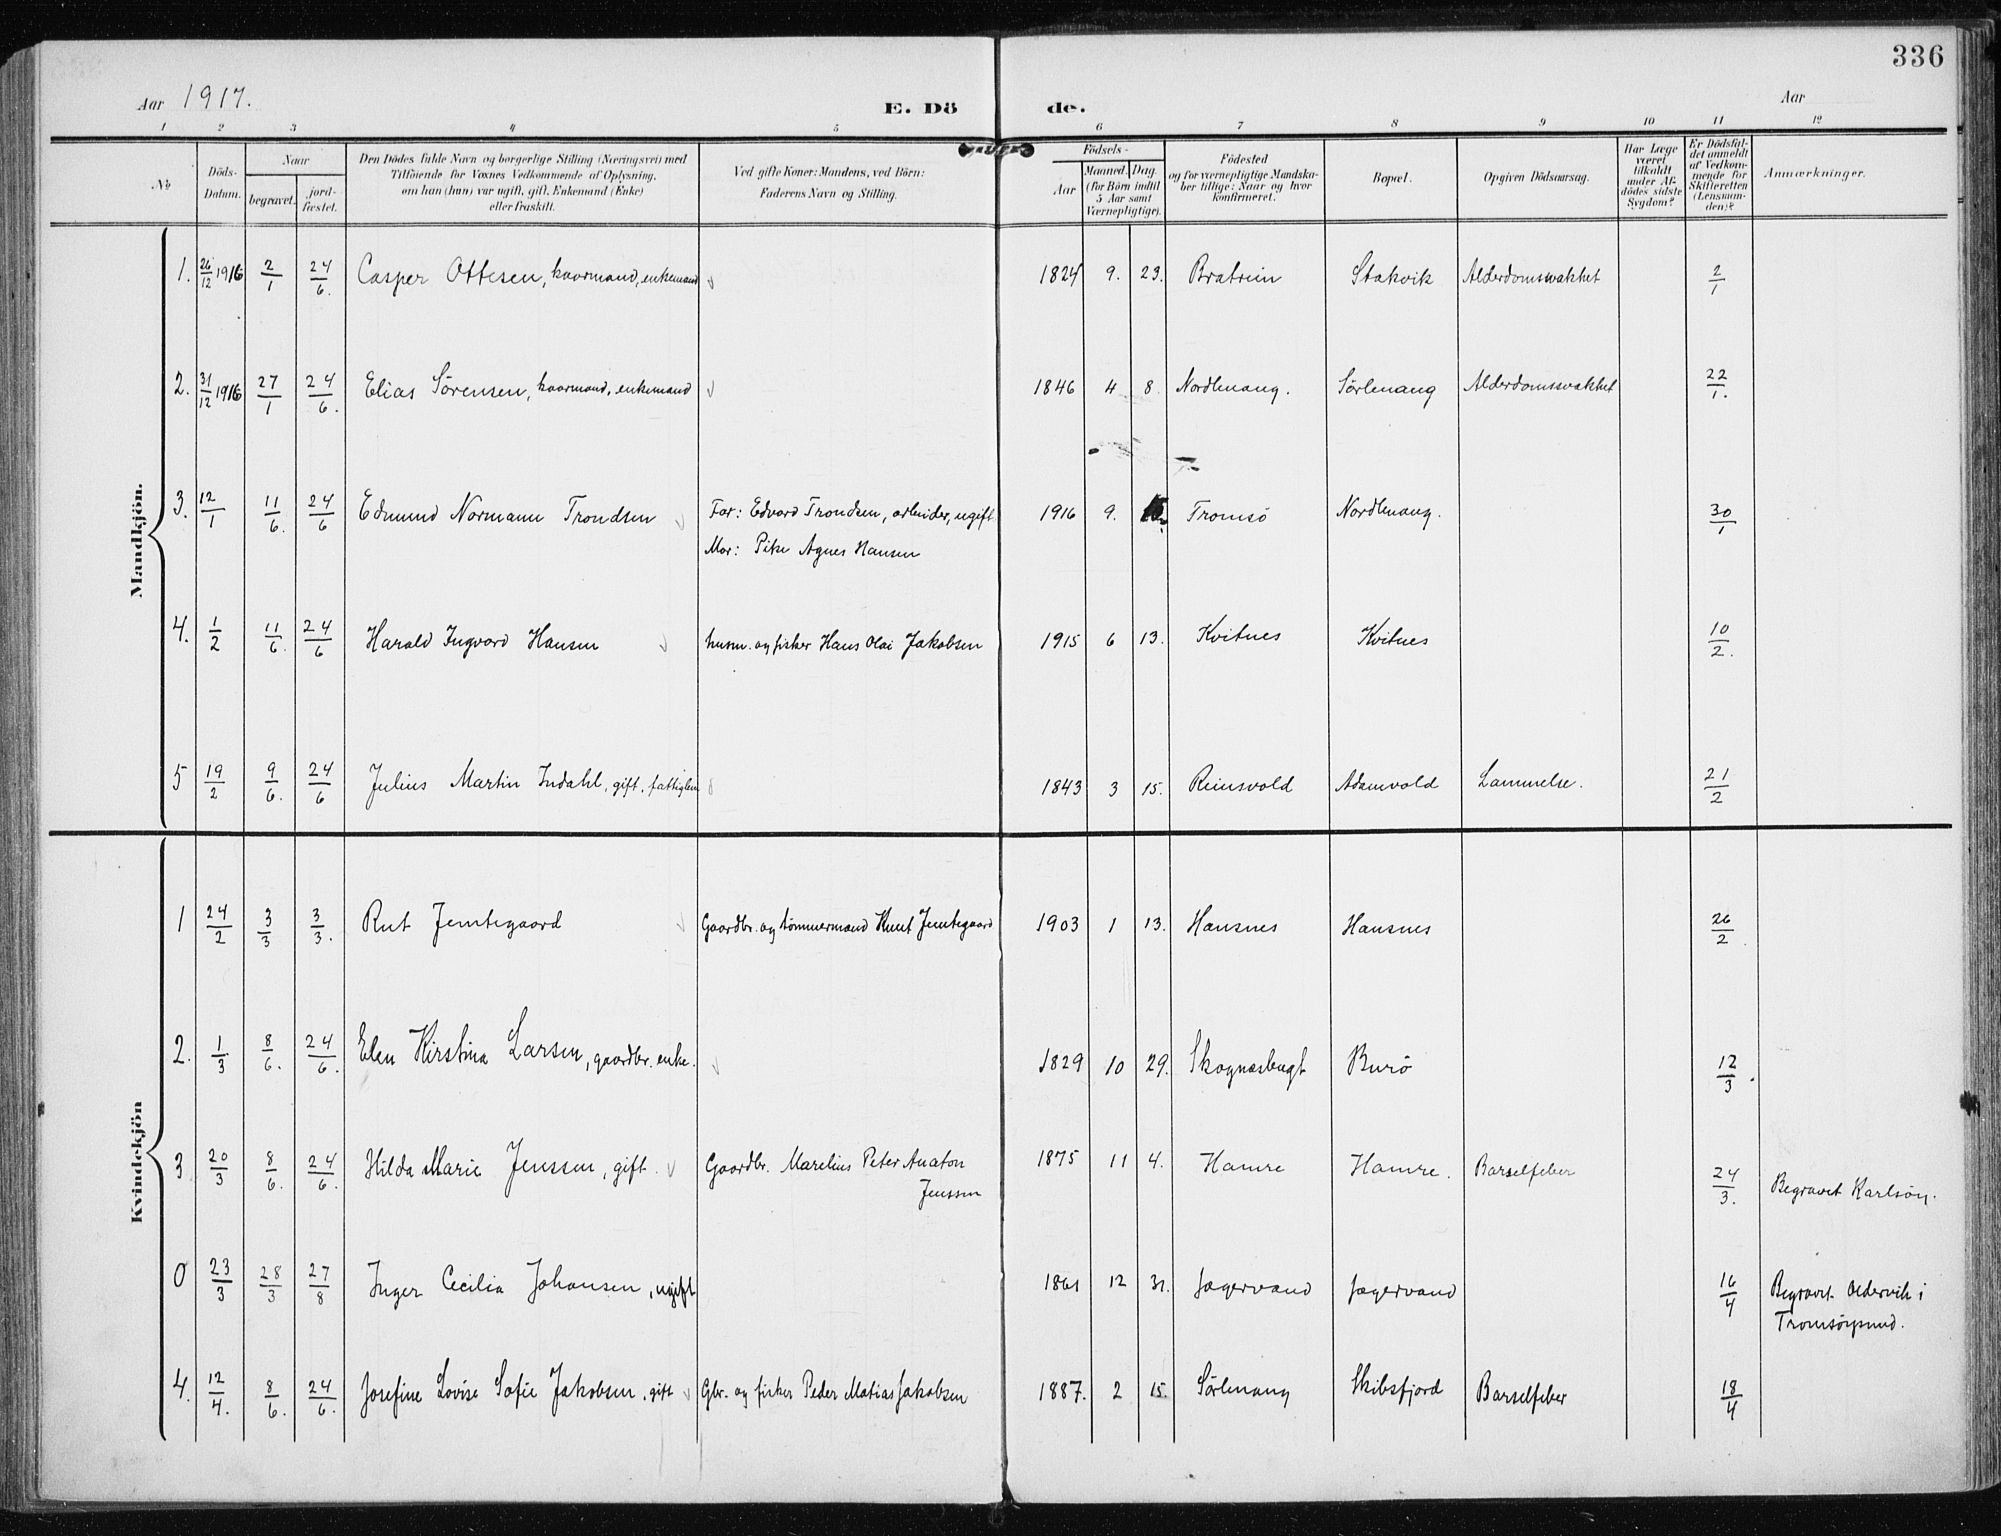 336
Aar 1917.
E. Dö de.
Aar
1 2 3 4 5 6 7 8 9 10 11 12
No
Döds-Datum.
Naar
begravet.
jord-fæstet.
Den Dödes fulde Navn og borgerlige Stilling (Næringsvei) med
Tilföiende for Voxnes Vedkommende af Oplysning,
om han (hun) var ugift, gift, Enkemand (Enke)
eller fraskilt.
Ved gifte Koner: Mandens, ved Börn:
Faderens Navn og Stilling.
Födsels-
Aar
Maaned. Dag.
(for Börn indtil
5 Aar samt
Værnepligtige).
Födested
og for værnepligtige Mandska-
ber tillige: Naar og hvor
konfirmeret.
Bopæl.
Opgiven Dödsaarsag.
Har Læge
været
tilkaldt
under Af-
dödes sidste
Sygdom?
Er Dödsfal-
det anmeldt
af Vedkom-
mende for
Skifteretten
(Lensman-
den)?
Anmærkninger.
Mandkjön.
1. 26/12 1916 2/1 24/6. Casper Ottesen, kaarmand, enkemand 1824 9. 23. Bratrein Stakvik Alderdomssvakhet 2/1
2. 31/12 1916 27/1 24/6. Elias Sörensen, kaarmand, enkemand 1846 4 8 Nordlenang. Sörlenang Alderdomssvakhet 22/1.
3. 12/1 11/6. 24/6 Edmund Normann Trondsen Far: Edvard Trondsen, arbeider, ugift 1916 9. Tromsö Nordlenang. 30/1
Mor: Pike Agnes Hansen
4. 1/2 11/6. 24/6 Harald Ingvard Hansen husm. og fisker Hans Olai Jakobsen 1915 6 13. Kvitnes Kvitnes 10/2.
5 19/2 9/6. 24/6 Julius Martin Indahl, gift, fattiglem 1843 3 15. Reinsvold Adamvold Lammelse. 21/2
Kvindekjön
1 24/2 3/3 3/3. Rut Jemtegaard Gaardbr. og tömmermand Knut Jemtegaard 1903 1 13. Hansnes Hansnes 26/2.
2. 1/3 8/6. 24/6. Elen Kirstina Larsen, gaardbr. enke. 1829 10 29. Skognesbugt Burö 12/3.
3 20/3 8/6. 24/6. Hilda Marie Jenssen, gift. Gaardbr. Marelius Peter Anaton 1875 11 4. Hamre Hamre. Barselfeber 24/3. Begravet Karlsöy.
Jenssen
0 23/3 28/3 27/8 Inger Cecilia Johansen, ugift 1861 12 31. Jægervand Jægervand 16/4 Begravet Oldervik i
Tromsöysund.
4. 12/4. 8/6. 24/6. Josefine Lovise Sofie Jakobsen, gift Gbr. og fisker Peder Matias Jakobsen 1887. 2 15. Sörlenang Skibsfjord Barselfeber 18/4